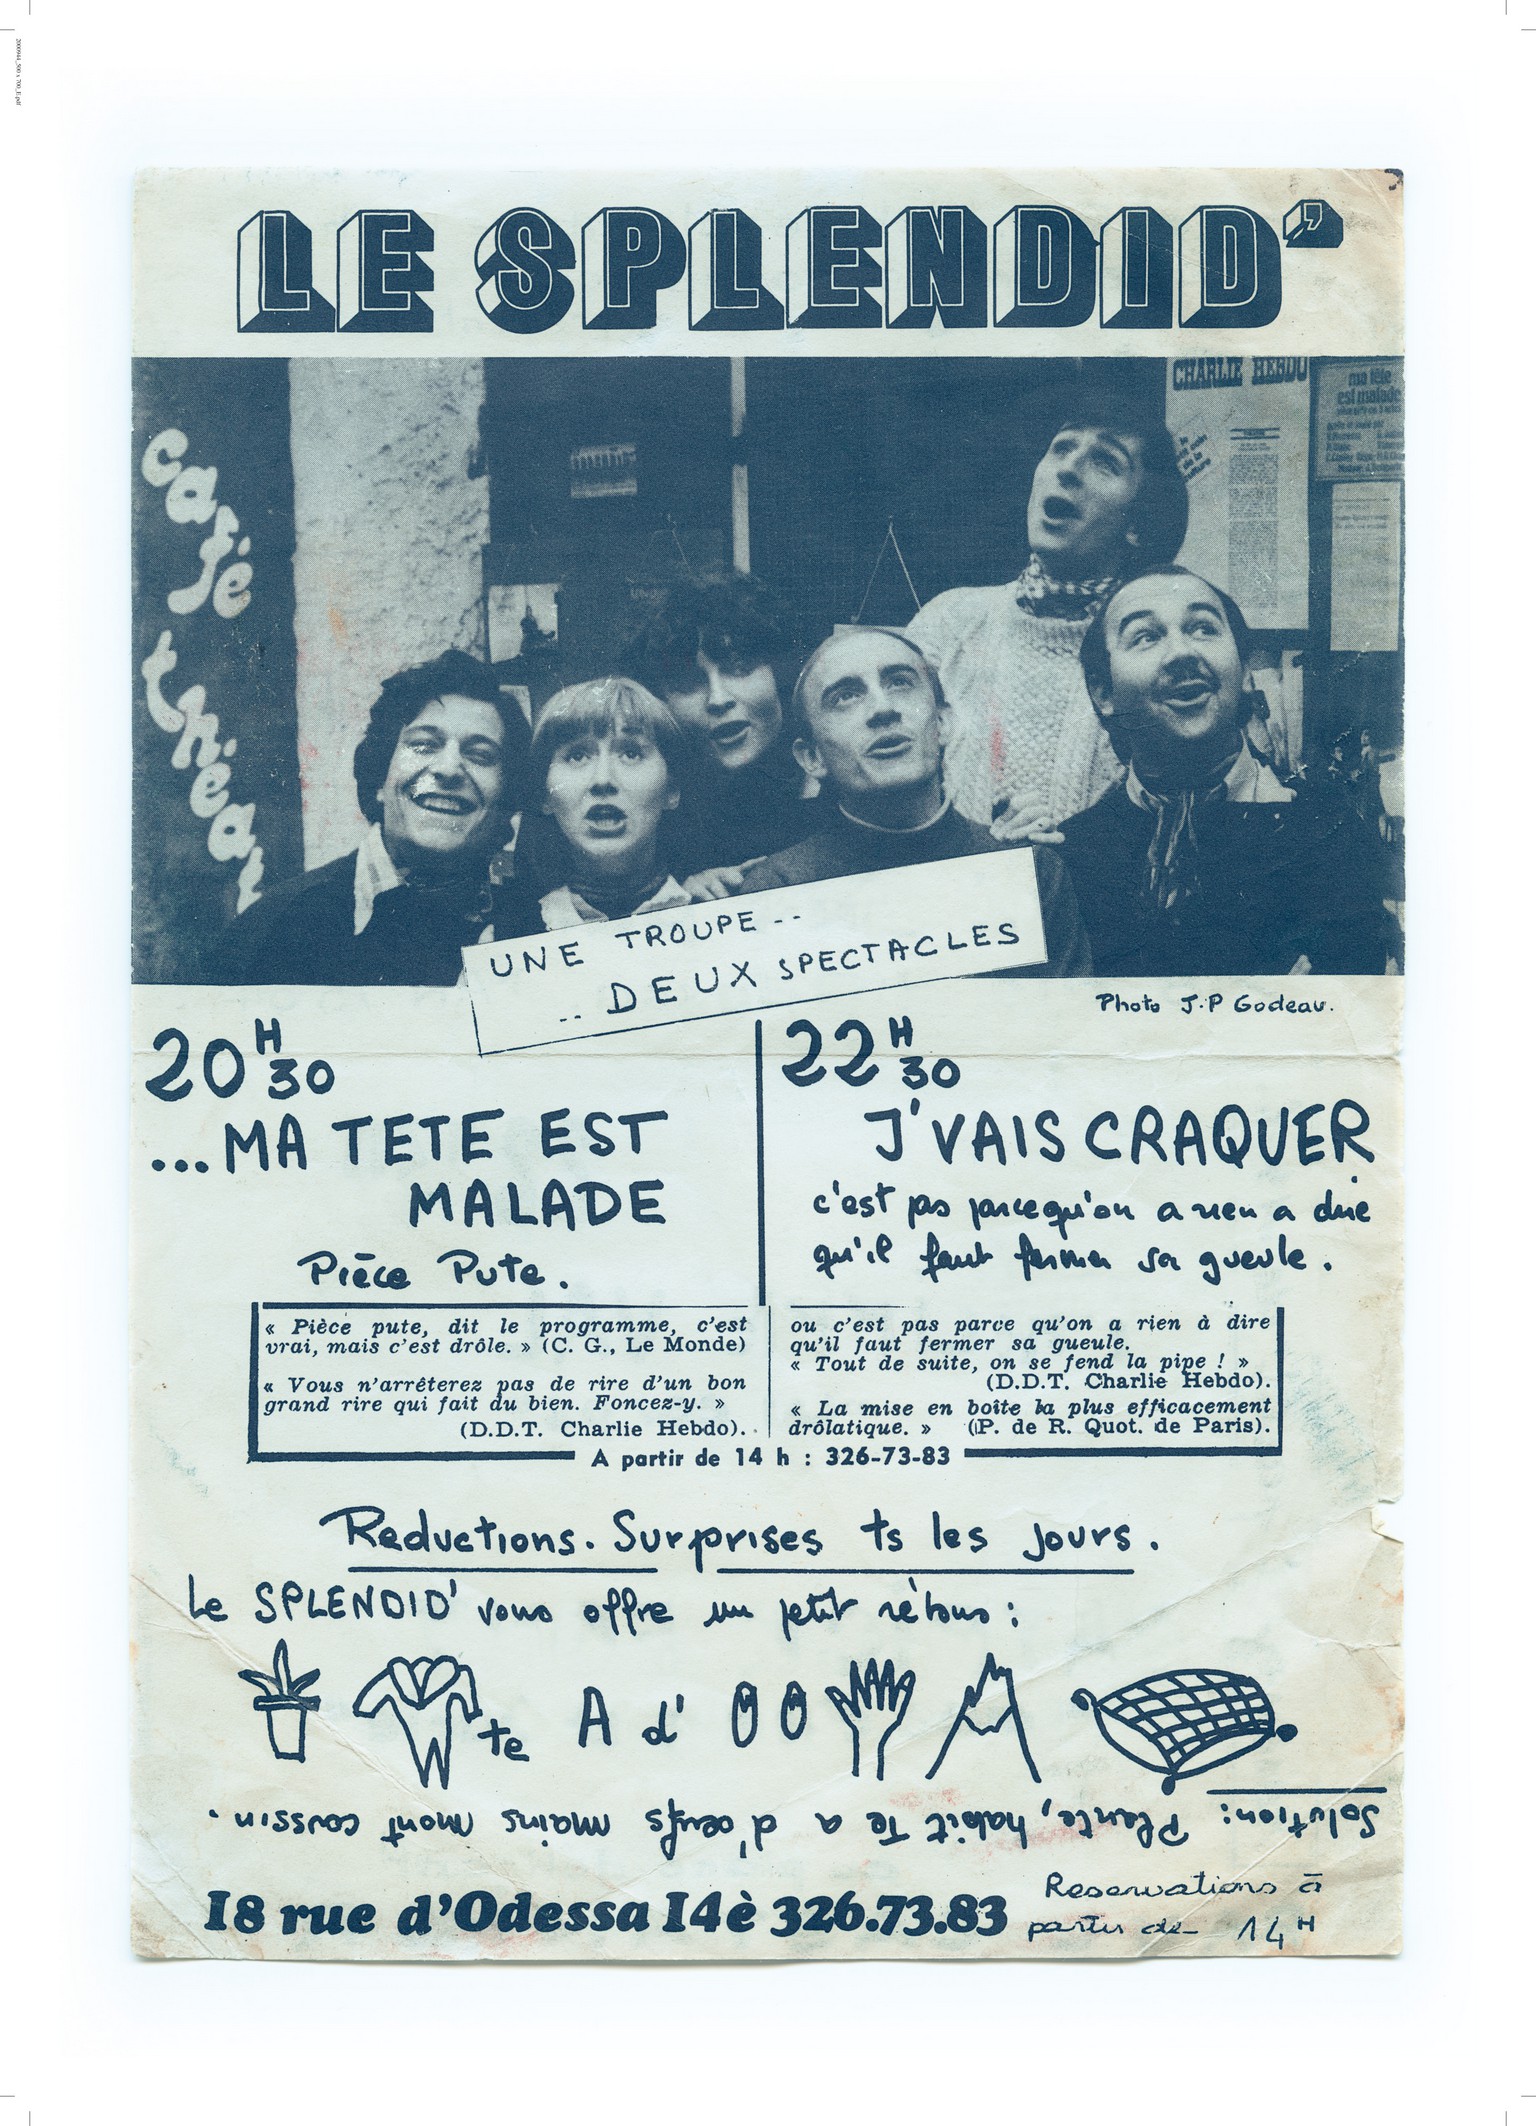 2000944_500 x 700_E.pdf
LE SPLENDID'
café
théat
CHARLIE HEBDO
ma tête
est malade
UNE TROUPE..
..DEUX SPECTACLES
Photo J.P Godeau.
20H30
...MA TETE EST
MALADE
Pièce Pute.
22H30
J'VAIS CRAQUER
c'est pas parcequ'on a rien a dire
qu'il faut fermer sa gueule.
« Pièce pute, dit le programme, c'est
vrai, mais c'est drôle. » (C. G., Le Monde)
« Vous n'arrêterez pas de rire d'un bon
grand rire qui fait du bien. Foncez-y. »
(D.D.T. Charlie Hebdo).
ou c'est pas parce qu'on a rien à dire
qu'il faut fermer sa gueule.
« Tout de suite, on se fend la pipe ! »
(D.D.T. Charlie Hebdo).
« La mise en boîte la plus efficacement
drôlatique. » (P. de R. Quot. de Paris).
A partir de 14 h : 326-73-83
Reductions. Surprises ts les jours.
Le SPLENDID' vous offre un petit rébus :
te A d'
Solution: Plante, habit Te a d'œufs mains mont coussin.
18 rue d'Odessa 14è 326.73.83
Reservations à
partir de 14H